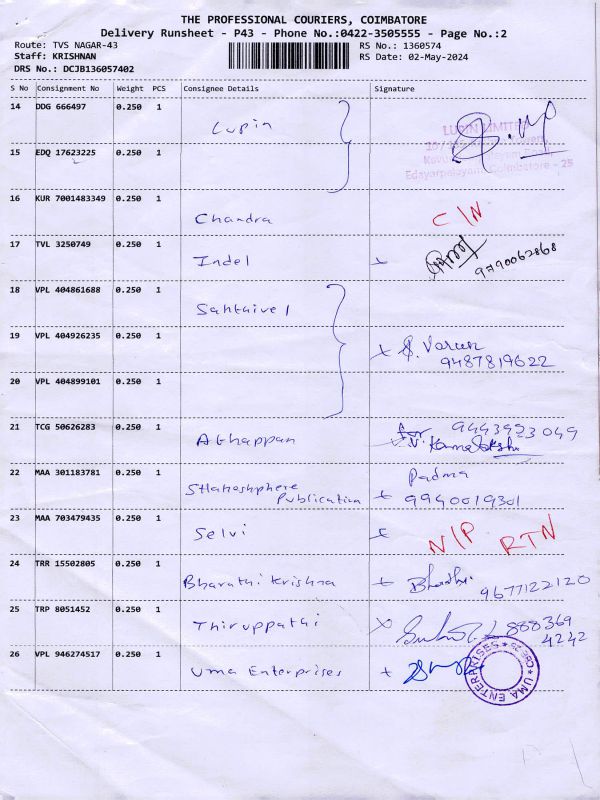 THE PROFESSIONAL COURIERS, COIMBATORE
Delivery Runsheet - P43 - Phone No.:0422-3505555 - Page No.:2
Route: TVS NAGAR-43
Staff: KRISHNAN
DRS No.: DCJB136057402
RS No.: 1360574
RS Date: 02-May-2024
S No Consignment No Weight PCS Consignee Details Signature
14 DDG 666497 0.250 1 Lupin
LUPIN LIMITED
Edayarpalayam, Coimbatore - 25
15 EDQ 17623225 0.250 1
16 KUR 7001483349 0.250 1 Chandra C/N
17 TVL 3250749 0.250 1 Indel 9790062868
18 VPL 404861688 0.250 1 Sahtaivel
19 VPL 404926235 0.250 1 S. Varun
9487819622
20 VPL 404899101 0.250 1
21 TCG 50626283 0.250 1 Athappan for 9443923049
V. Kamatokshi
22 MAA 301183781 0.250 1 Sthaoshphere Publication Padma
9940019301
23 MAA 703479435 0.250 1 Selvi N/P RTN
24 TRR 15502805 0.250 1 Bharathi Krishna 9677122120
25 TRP 8051452 0.250 1 Thiruppathi 888369
4242
26 VPL 946274517 0.250 1 Uma Enterprises
UMA ENTERPRISES * CBE-25 *